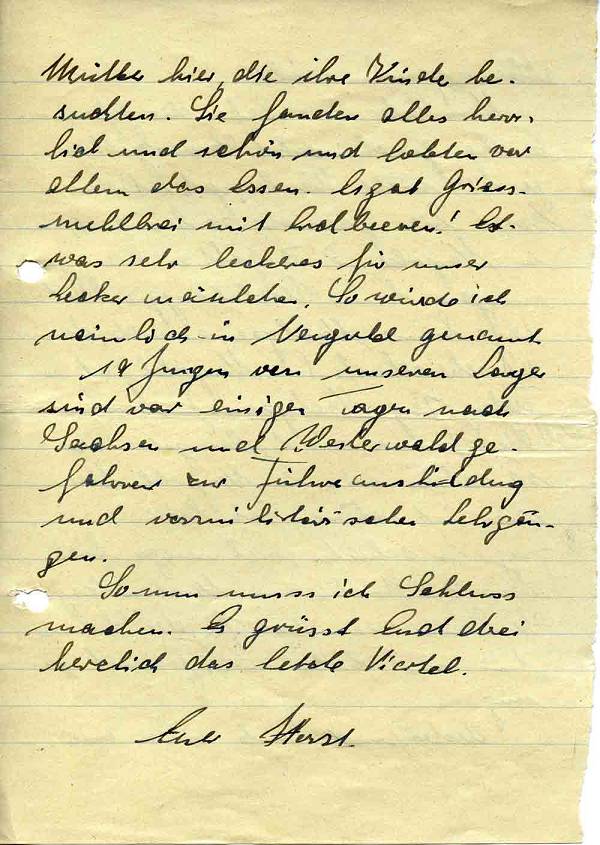 Mütter hier, die ihre Kinder be-
suchten. Sie fanden alles herr-
lich und schön und lobten vor
allem das Essen. Es gab Griess-
mehlbrei mit Erdbeeren! Et-
was sehr leckeres für unser
Leckermäulchen. So würde ich
nämlich in genannt
18 Jungen von unseren Lager
sind vor einigen Tagen nach
Sachsen und Westerwald ge-
fahren zur Führerausbildung
und vormilitärischen Lehrgän-
gen.
So nun muss ich Schluss
machen. Es grüsst Euch drei
herzlich das letzte Viertel.
Euer Horst.